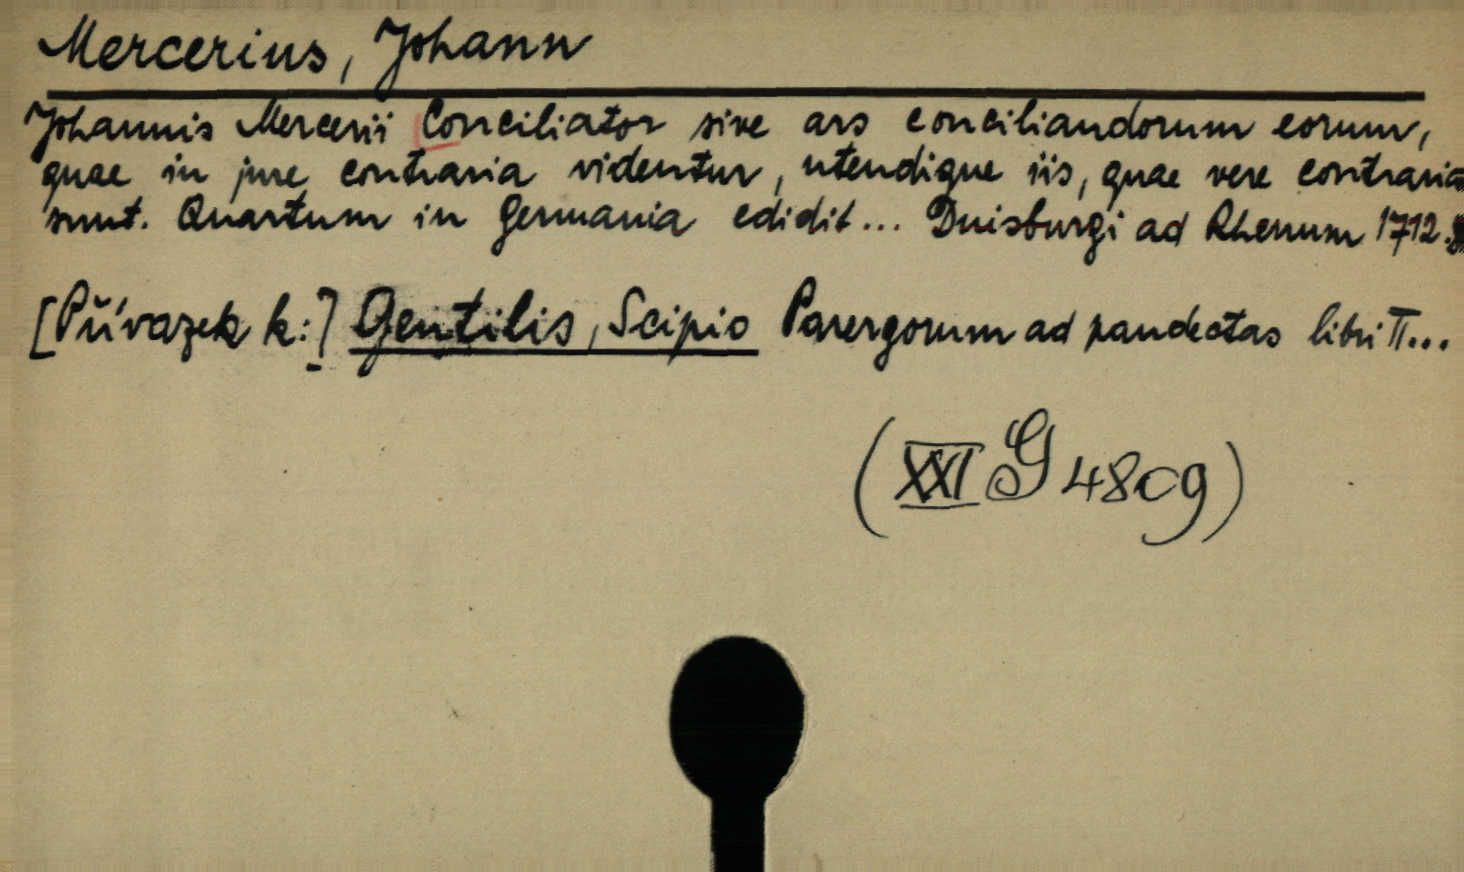 Mercerius, Johann
Johannis Mercerii Conciliator sive ars conciliandorum eorum,
quae in jure contraria videntur, utendique iis, quae vere contraria
sunt. Quartum in Germania edidit... Duisburgi ad Rhenum 1712.
[Přívazek k:] Gentilis, Scipio Parergorum ad pandectas libri II...
(XXI G 4809)